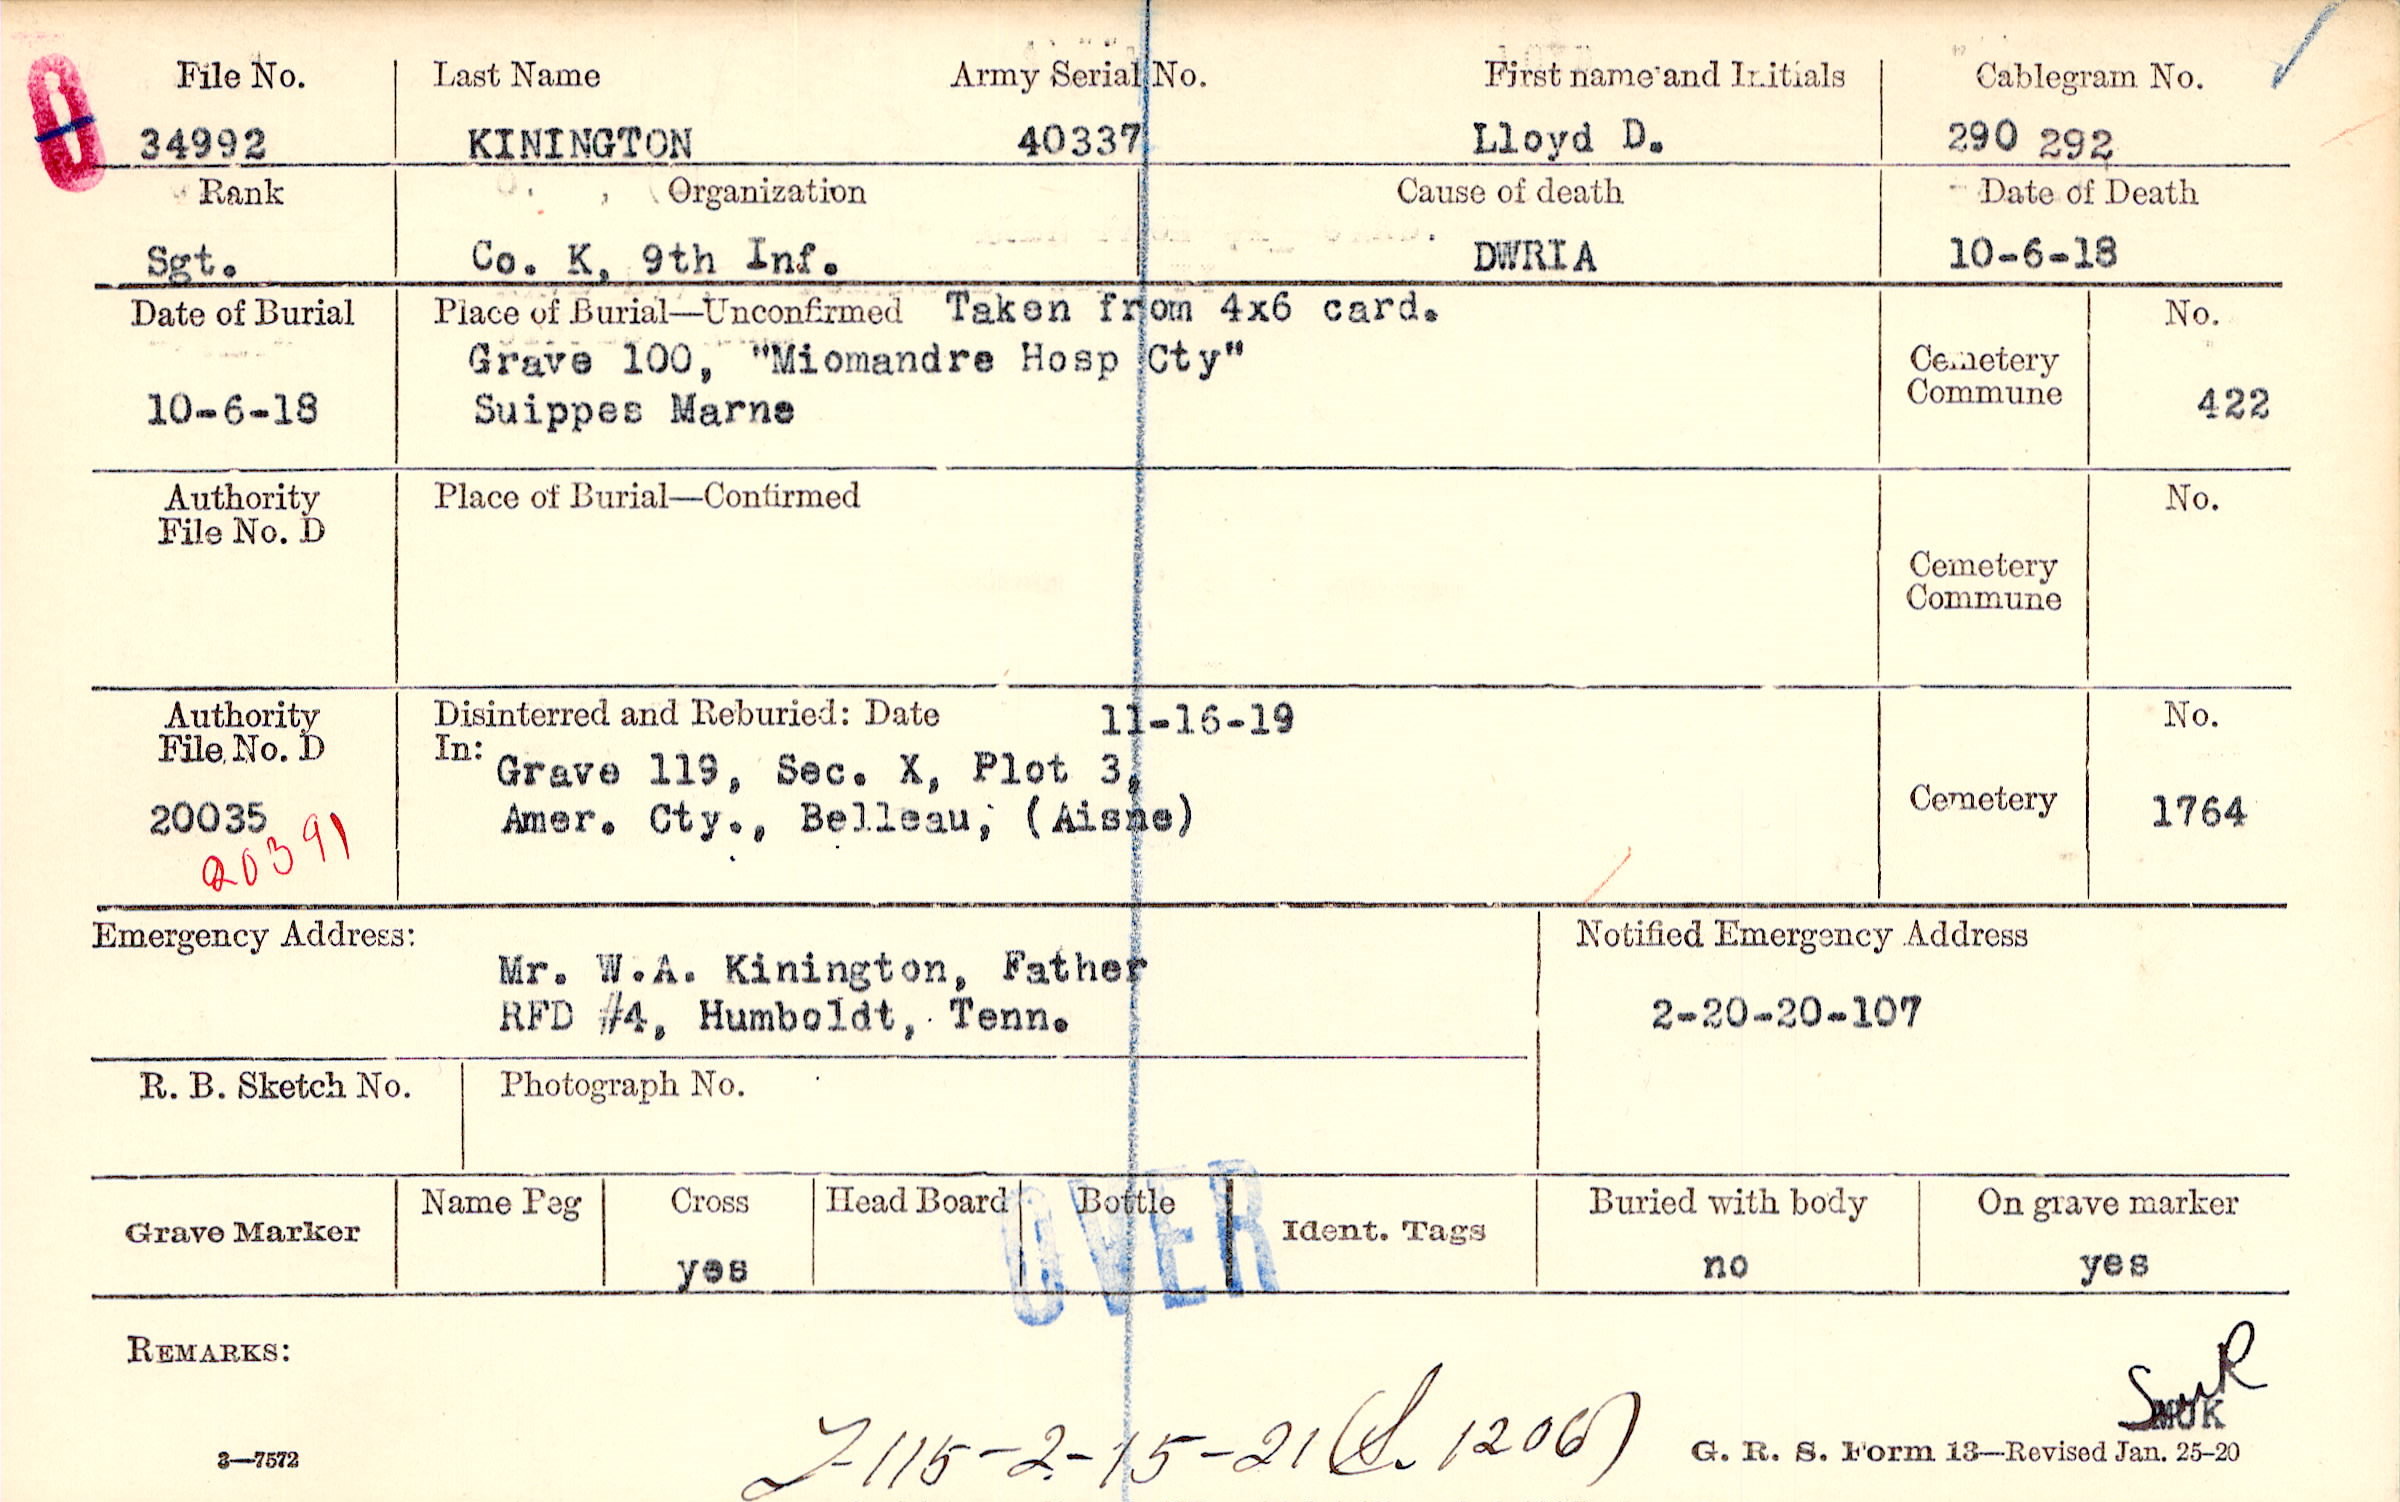 File No. Last Name Army Serial No. First name and Initials Cablegram No.
34992 KININGTON 40337 Lloyd D. 290 292
Rank Organization Cause of death Date of Death
Sgt. Co. K, 9th Inf. DWRIA 10-6-18
Date of Burial Place of Burial—Unconfirmed Taken from 4x6 card. No.
Grave 100, "Miomandre Hosp Cty" Cemetery
Commune
10-6-18 Suippes Marne 422
Authority Place of Burial—Confirmed No.
File No. D
Cemetery
Commune
Authority Disinterred and Reburied: Date 11-16-19 No.
File No. D In:
Grave 119, Sec. X, Plot 3,
20035 Amer. Cty., Belleau, (Aisne) Cemetery 1764
20391
Emergency Address: Notified Emergency Address
Mr. W.A. Kinington, Father
RFD #4, Humboldt, Tenn. 2-20-20-107
R. B. Sketch No. Photograph No.
Grave Marker Name Peg Cross Head Board Bottle Ident. Tags Buried with body On grave marker
yes no yes
OVER
REMARKS:
MUK
115-2-15-21 (S. 1206)
3—7572 G. R. S. Form 13—Revised Jan. 25-20